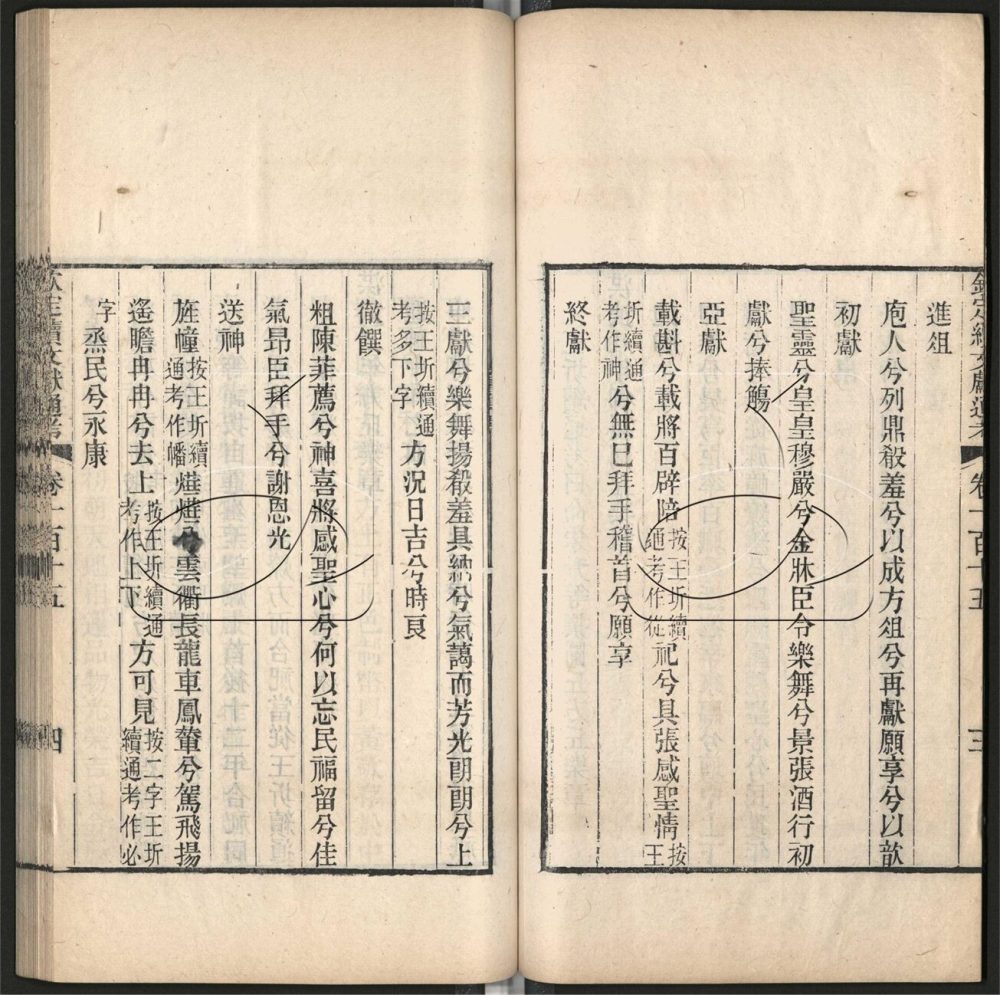 進俎
庖人兮列鼎殽羞兮以成方俎兮再獻願享兮以歆
初獻
聖靈兮皇皇穆嚴兮金牀臣令樂舞兮景張酒行初
獻兮捧觴
亞獻
載斟兮載將百辟陪按王圻續通考作從祀兮具張感聖情按王
圻續通考作神兮無已拜手稽首兮願享
終獻
三獻兮樂舞揚殽羞具納兮氣藹而芳光朗朗兮上
按王圻續通考多下字方況日吉兮時良
徹饌
粗陳菲薦兮神喜將感聖心兮何以忘民福留兮佳
氣昂臣拜手兮謝恩光
送神
旌幢按王圻續通考作幡燁燁兮雲衢長龍車鳳輦兮駕飛揚
遙瞻冉冉兮去上按王圻續通考作上下方可見按二字王圻續通考作必
字烝民兮永康
欽定續文獻通考 卷一百十五 三
欽定續文獻通考 卷一百十五 四